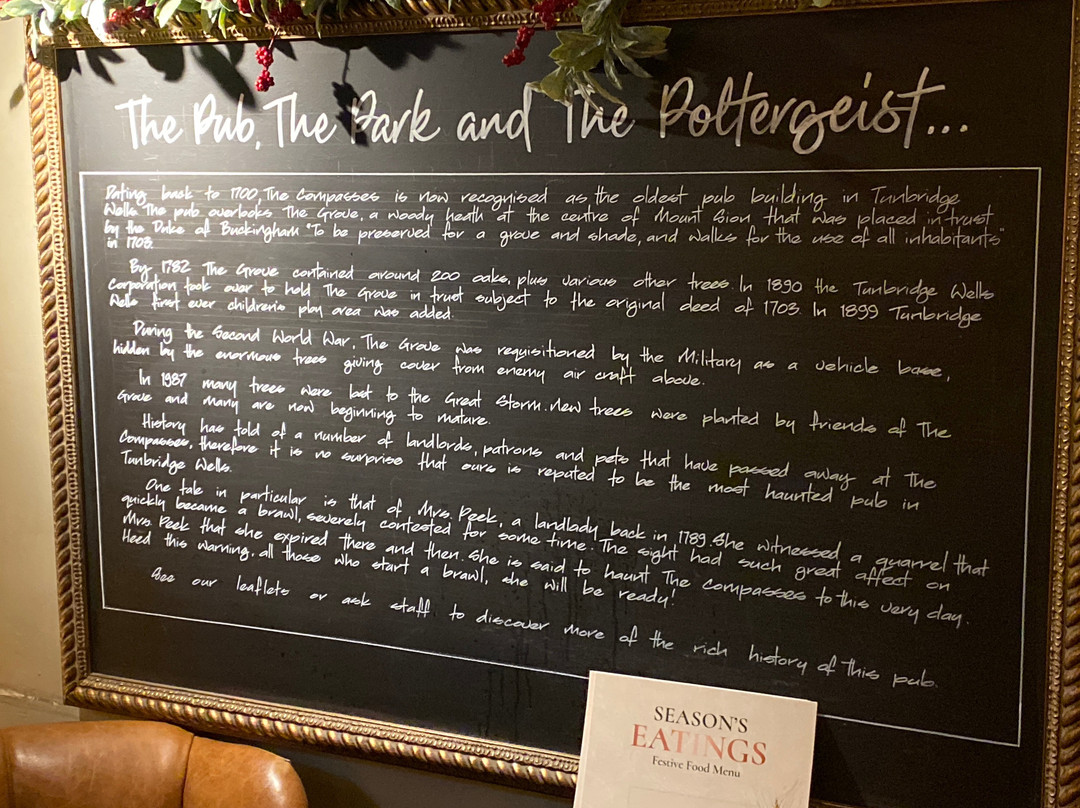 The Pub, The Park and The Poltergeist...
Dating back to 1700, The Compasses is now recognised as the oldest pub building in Tunbridge
Wells. The pub overlooks The Grove, a woody heath at the centre of Mount Sion that was placed in trust
by the Duke of Buckingham "To be preserved for a grove and shade, and walks for the use of all inhabitants"
in 1703.
By 1782 The Grove contained around 200 oaks, plus various other trees. In 1890 the Tunbridge Wells
Corporation took over to hold The Grove in trust subject to the original deed of 1703. In 1899 Tunbridge
Wells first ever children's play area was added.
During the Second World War, The Grove was requisitioned by the Military as a vehicle base,
hidden by the enormous trees giving cover from enemy air craft above.
In 1987 many trees were lost to the Great Storm. New trees were planted by friends of The
Grove and many are now beginning to mature.
History has told of a number of landlords, patrons and pets that have passed away at The
Compasses, therefore it is no surprise that ours is reputed to be the most haunted pub in
Tunbridge Wells.
One tale in particular is that of Mrs. Peek, a landlady back in 1789. She witnessed a quarrel that
quickly became a brawl, severely contested for some time. The sight had such great affect on
Mrs. Peek that she expired there and then. She is said to haunt The Compasses to this very day.
Heed this warning, all those who start a brawl, she will be ready!
See our leaflets or ask staff to discover more of the rich history of this pub.
SEASON'S
EATINGS
Festive Food Menu